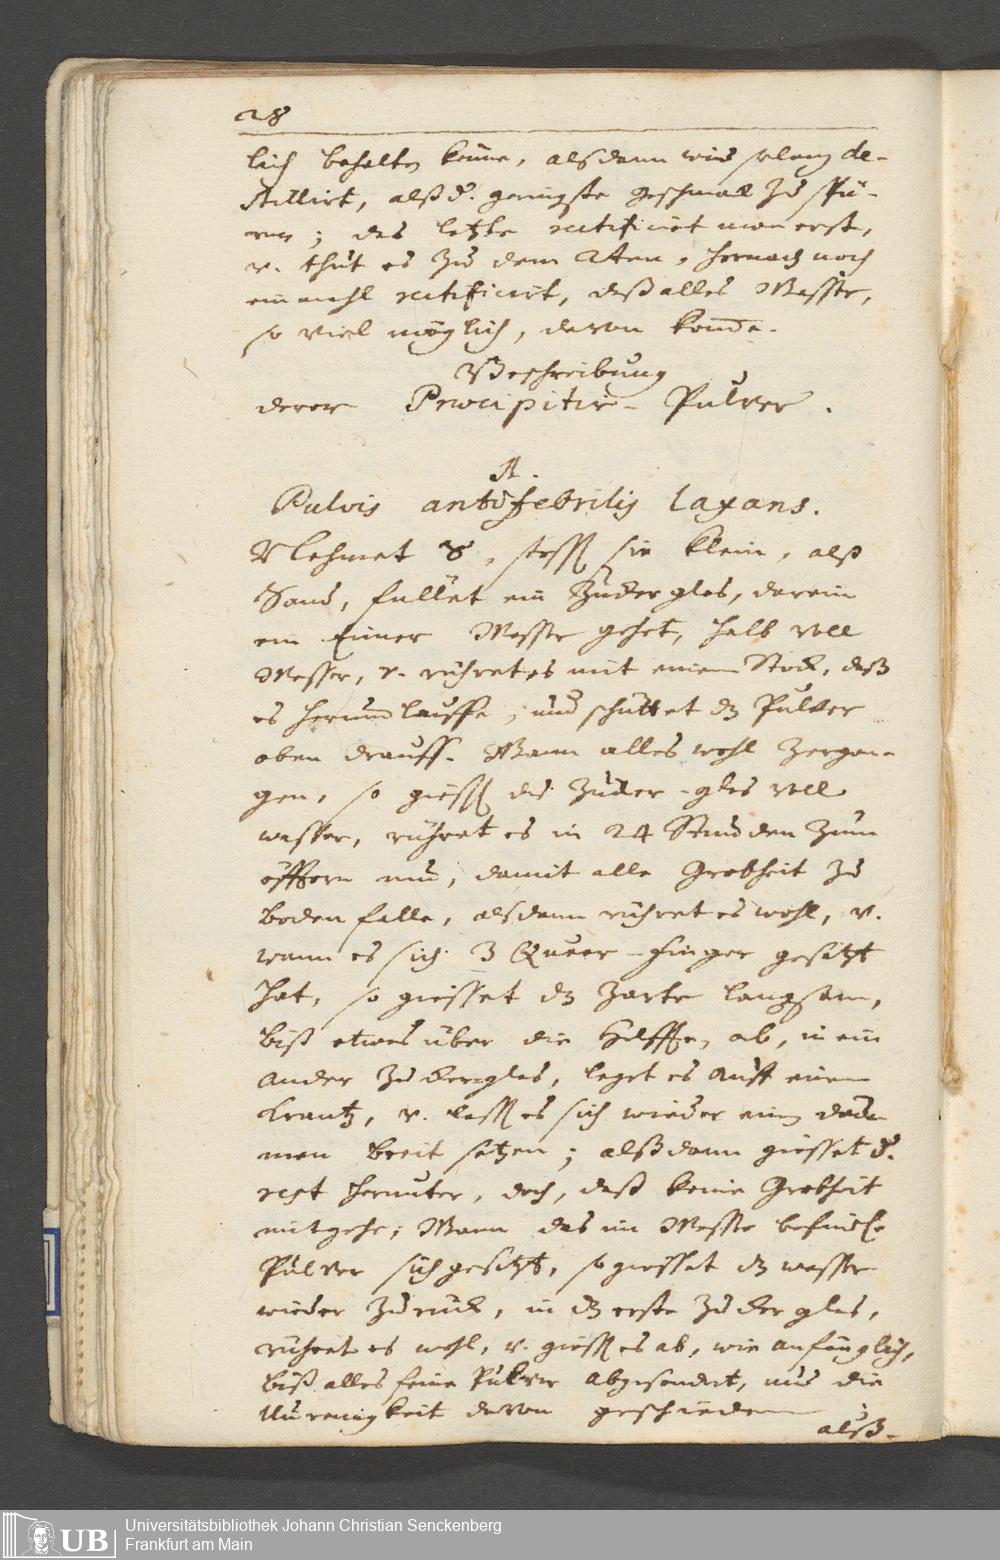 28
lich behalten könne, alsdann wird solang de-
stillirt, alß d. geringste geschmack zu spü-
ren; das letzte rectificiret man erst,
v. thut es zu dem Aten, hernach noch
ein mahl rectificirt, daß alles Wasser,
so viel möglich, davon kom̅e.
Beschreibung
derer Præcipitir-Pulver.
A.
Pulvis antifebrilis laxans.
Nehmet , stosst sie klein, alß
Sand, füllet ein Zuckerglas, darein
ein Eimer Wasser gehet, halb voll
Wasser, v. rühret es mit einem Stock, daß
es herumlauffe, und schüttet dz Pulver
oben drauff. Wann alles wohl zergan-
gen, so giesst das Zucker-glas voll
wasser, rühret es in 24 Stunden zum
öfftern um, damit alle Grobheit zu
boden falle, alsdann rühret es wohl, v.
wann es sich 3 Queer-finger gesetzt
hat, so giesset dz zarte langsam,
biß etwas über die Helffte, ab, in ein
ander Zuckerglas, leget es auff einen
Krantz, v. lasst es sich wieder einen dau-
men breit setzen; alßdann giesset d.
rest herunter, doch, daß keine Grobheit
mitgehe; Wann das im Wasser befindl.
Pulver sich gesetzt, so giesset dz wasser
wieder zurück, in dz erste Zuckerglas,
rühret es wohl, v. giesst es ab, wie anfänglich,
biß alles feine Pulver abgesondert, und die
Unreinigkeit davon geschieden;
alß-
Universitätsbibliothek Johann Christian Senckenberg
Frankfurt am Main
UB